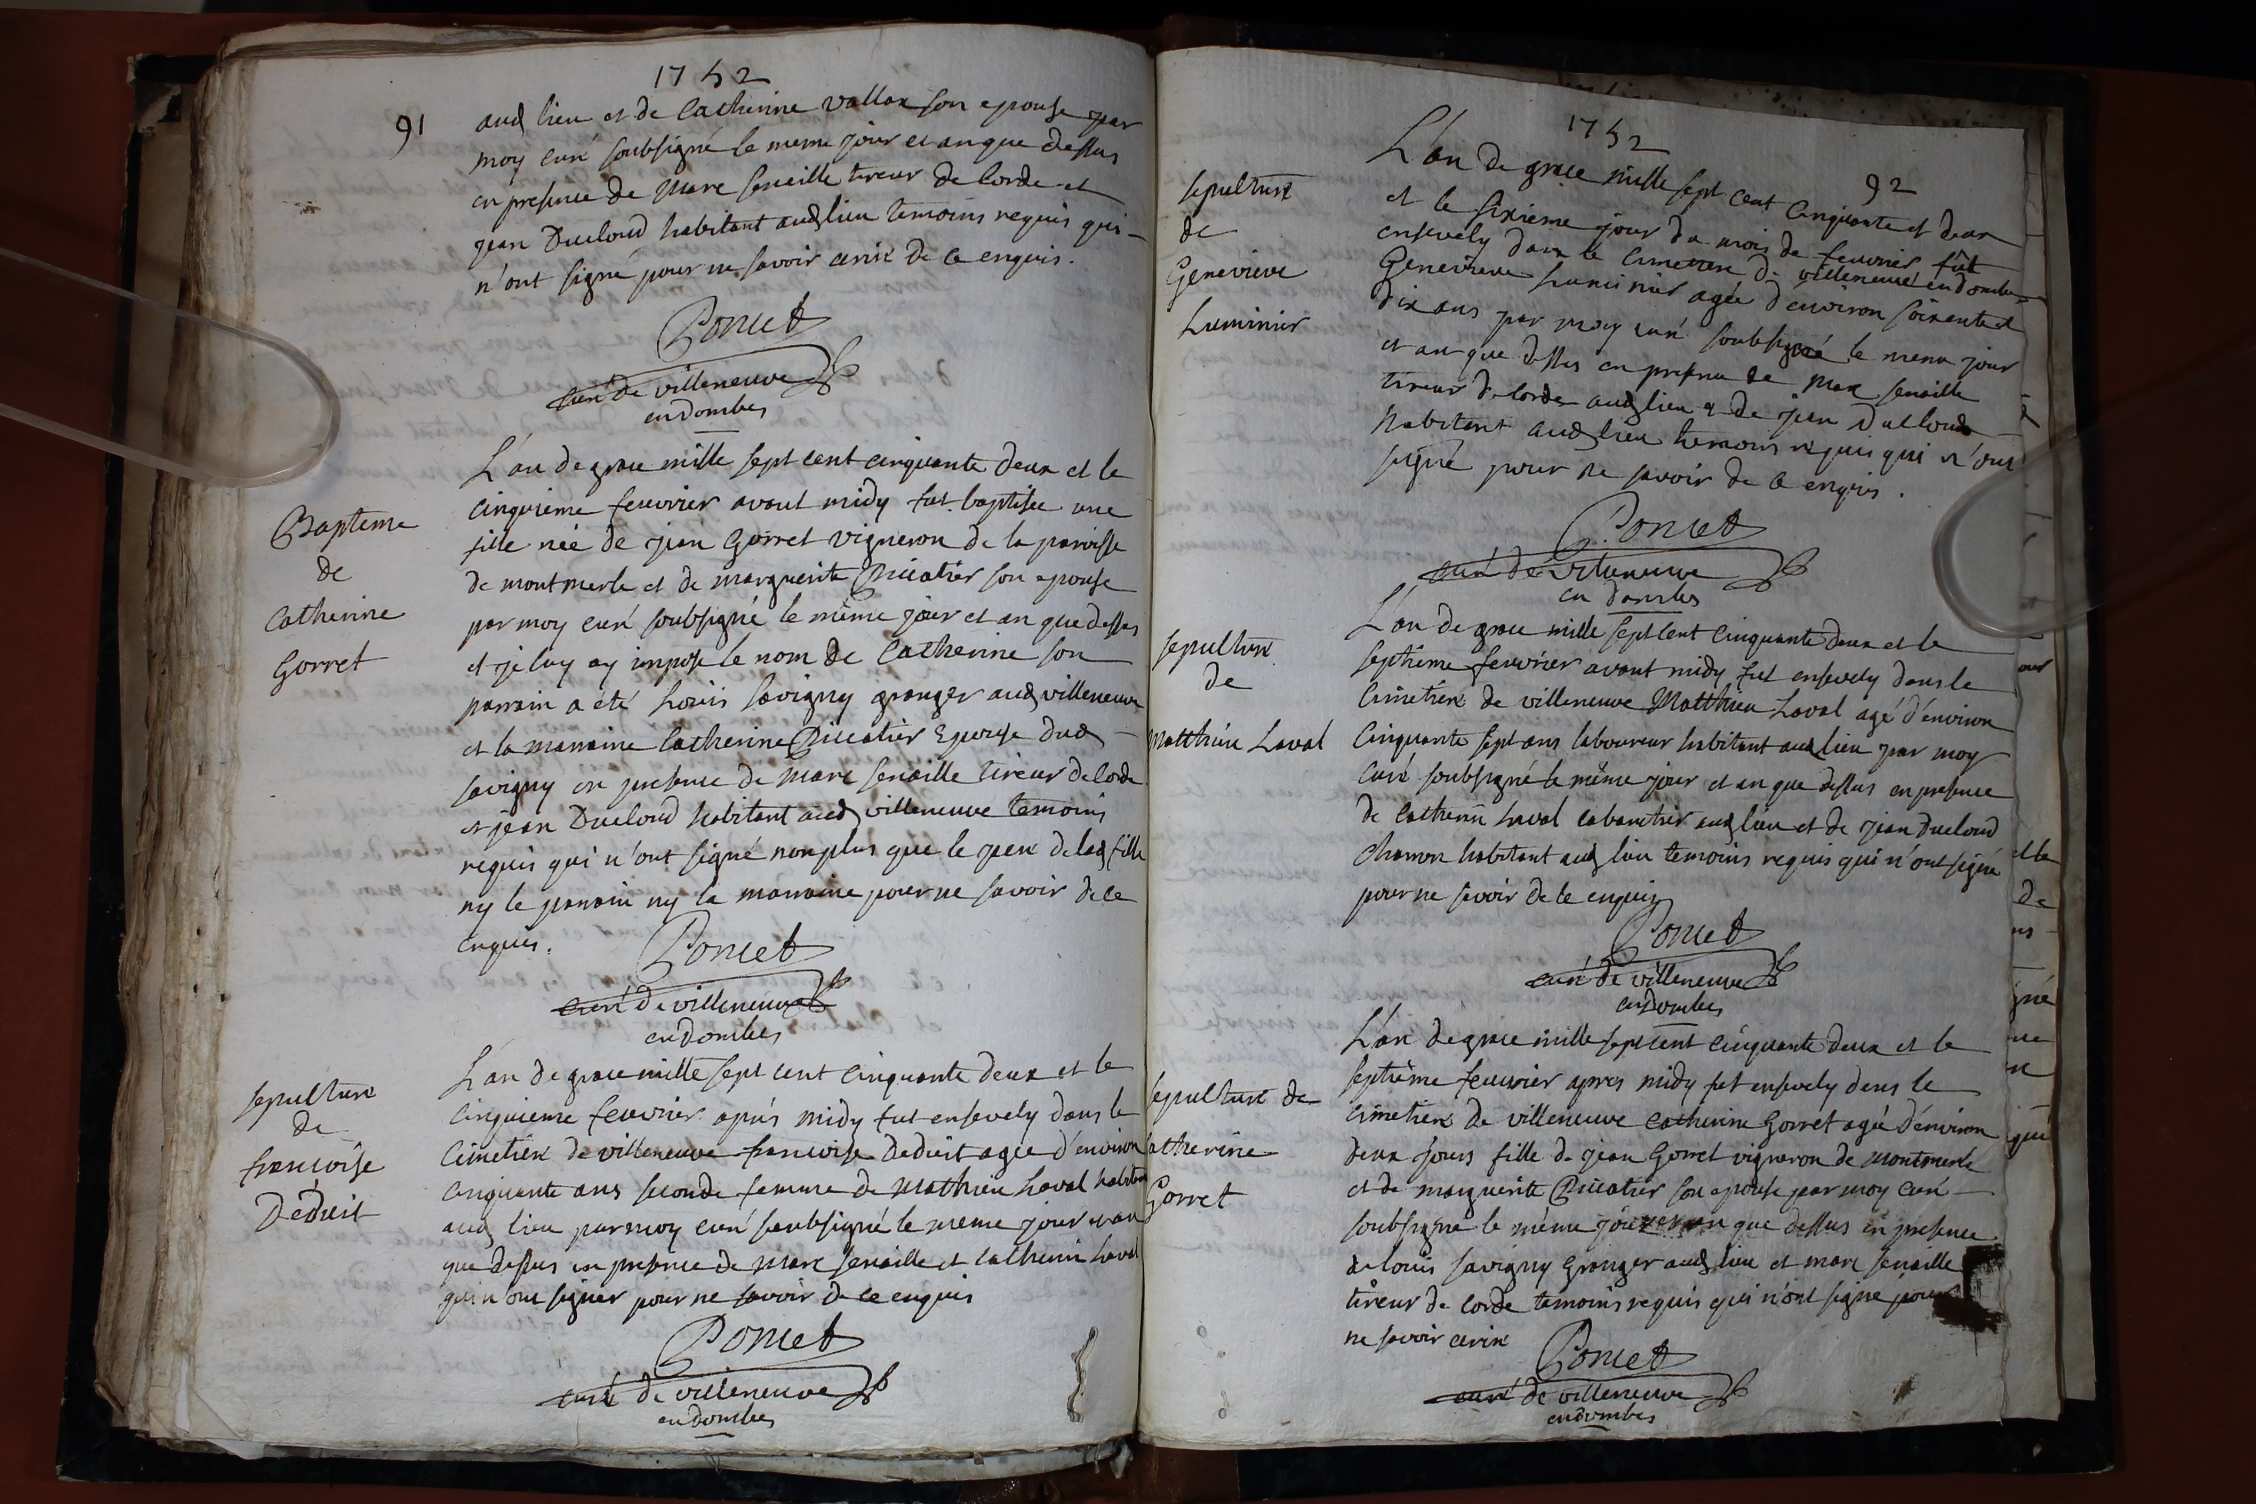 1752
91
aud lieu et de Catherine vallox son epouse par
moy curé soubsigné le meme jour et an que dessus
en presence de Marc senaille tireur de corde et
jean Ducloud habitant aud lieu temoins requis qui
n'ont signé pour ne savoir ecrire de ce enquis.
Poncet
curé de villeneuve
en dombes
Bapteme
de
Catherine
Gorret
L'an de grace mille sept cent cinquante deux et le
cinquieme feuvrier avant midy fut baptisée une
fille née de jean Gorret vigneron de la paroisse
de montmerle et de marguerite Bricatier son epouse
par moy curé soubsigné le même jour et an que dessus
et je luy ay imposé le nom de Catherine son
parrain a été Louis savigny granger aud villeneuve
et la marraine Catherine Bricatier Epouse dud
savigny en presence de Marc senaille tireur de corde
et jean Ducloud habitant aud villeneuve temoins
requis qui n'ont signé nonplus que le pere de lad fille
ny le parrain ny la marraine pour ne savoir de ce
enquis.
Poncet
curé de villeneuve
en dombes
sepulture
de
francoise
Déduit
L'an de grace mille sept cent cinquante deux et le
cinquieme feuvrier apres midy fut ensevely dans le
cimetiere de villeneuve francoise Deduit agée d'environ
cinquante ans seconde femme de Mathieu Laval habitant
aud lieu par moy curé soubsigné le meme jour et an
que dessus en presence de Marc senaille et Catherin Laval
qui n'ont signer pour ne savoir de ce enquis
Poncet
curé de villeneuve
en dombes
1752
92
sepulture
de
Genevieve
Luminier
L'an de grace mille sept cent cinquante et deux
et le sixieme jour du mois de feuvrier fût
ensevely dans le cimetiere de villeneuve en dombes
Genevieve Luminier agée d'environ soixante et
dix ans par moy curé soubsigné le meme jour
et an que dessus en presence de Marc senaille
tireur de corde aud lieu et de jean Ducloud
habitant aud lieu temoins requis qui n'ont
signé pour ne savoir de ce enquis.
Poncet
curé de villeneuve
en dombes
sepulture
de
Matthieu Laval
L'an de grace mille sept cent cinquante deux et le
septième feuvrier avant midy fut ensevely dans le
cimetiere de villeneuve Matthieu Laval agé d'environ
cinquante sept ans laboureur habitant aud lieu par moy
curé soubsigné le même jour et an que dessus en presence
de Catherin Laval cabaretier aud lieu et de jean Ducloud
charron habitant aud lieu temoins requis qui n'ont signé
pour ne savoir de ce enquis
Poncet
curé de villeneuve
en dombes
sepulture de
Catherine
Gorret
L'an de grace mille sept cent cinquante deux et le
septième feuvrier apres midy fut ensevely dans le
cimetiere de villeneuve Catherine Gorret agée d'environ
deux jours fille de jean Gorret vigneron de Montmerle
et de marguerite Bricatier son epouse par moy curé
soubsigné le même jour et an que dessus en presence
de Louis savigny granger aud lieu et marc senaille
tireur de corde temoins requis qui n'ont signé pour
ne savoir ecrire
Poncet
curé de villeneuve
en dombes